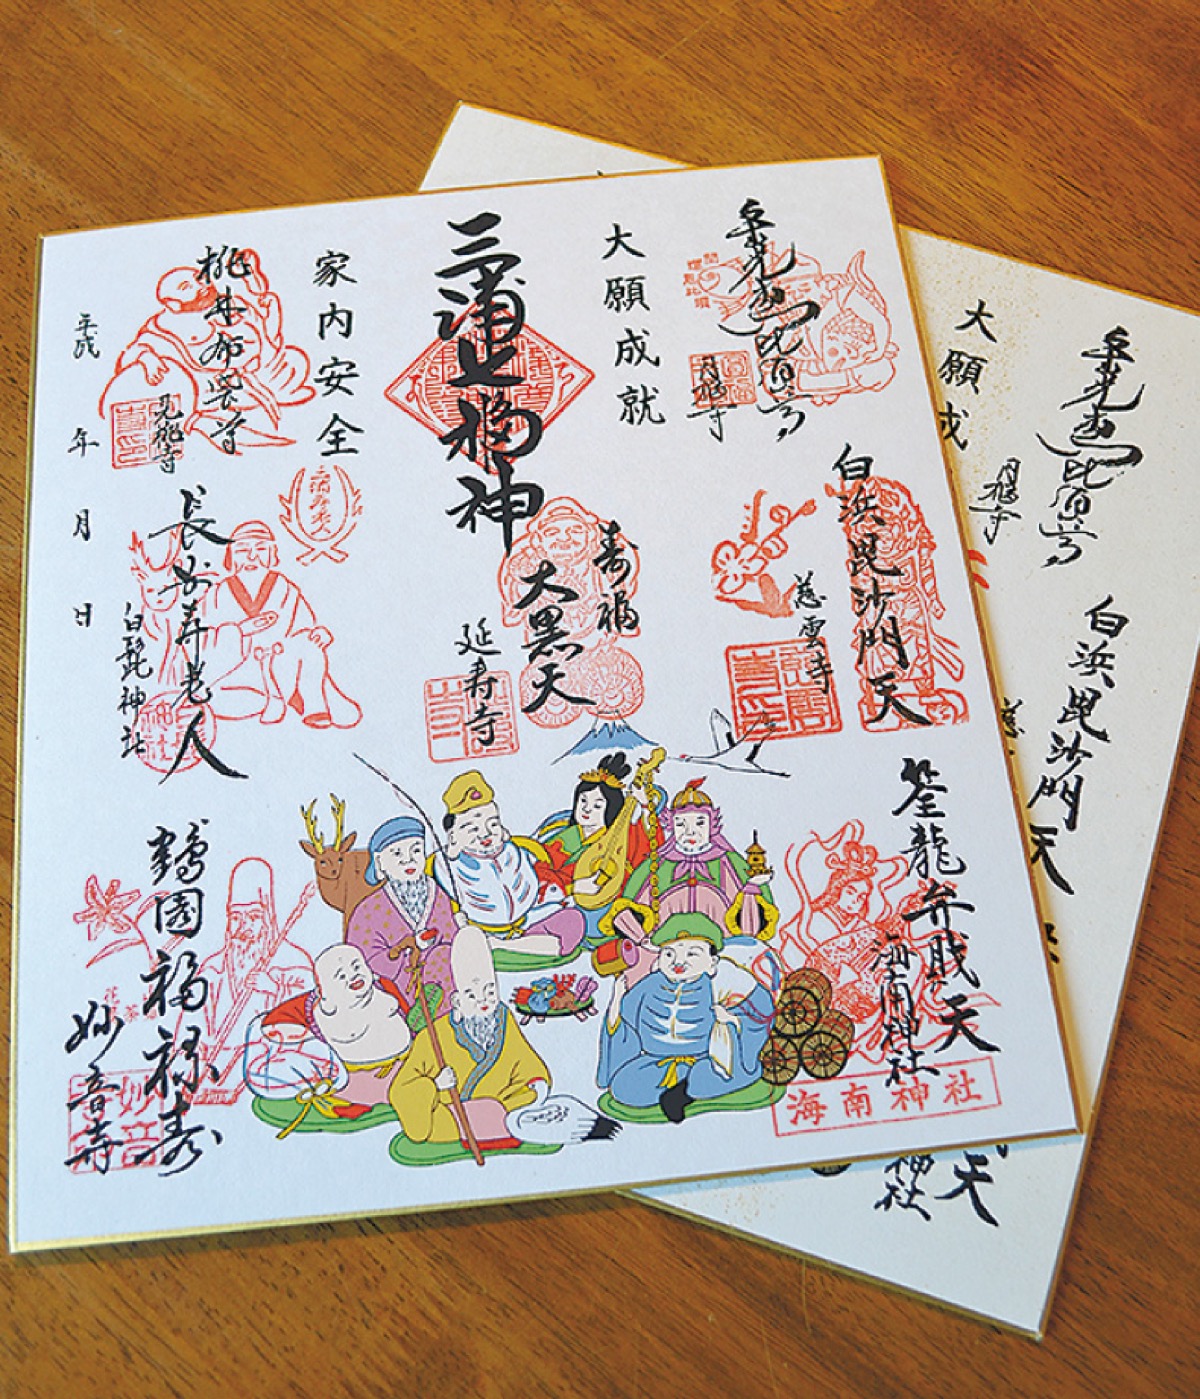 大願成就
円福寺
白浜毘沙門天
慈雲寺
筌龍弁財天
海南神社
海南神社
三浦七福神
寿福
大黒天
延寿寺
家内安全
桃林布袋尊
見桃寺
長安寿老人
白髭神社
鶴園福禄寿
妙音寺
平成
年
月
日
大願成
円福寺
白浜毘沙門天
神社
天